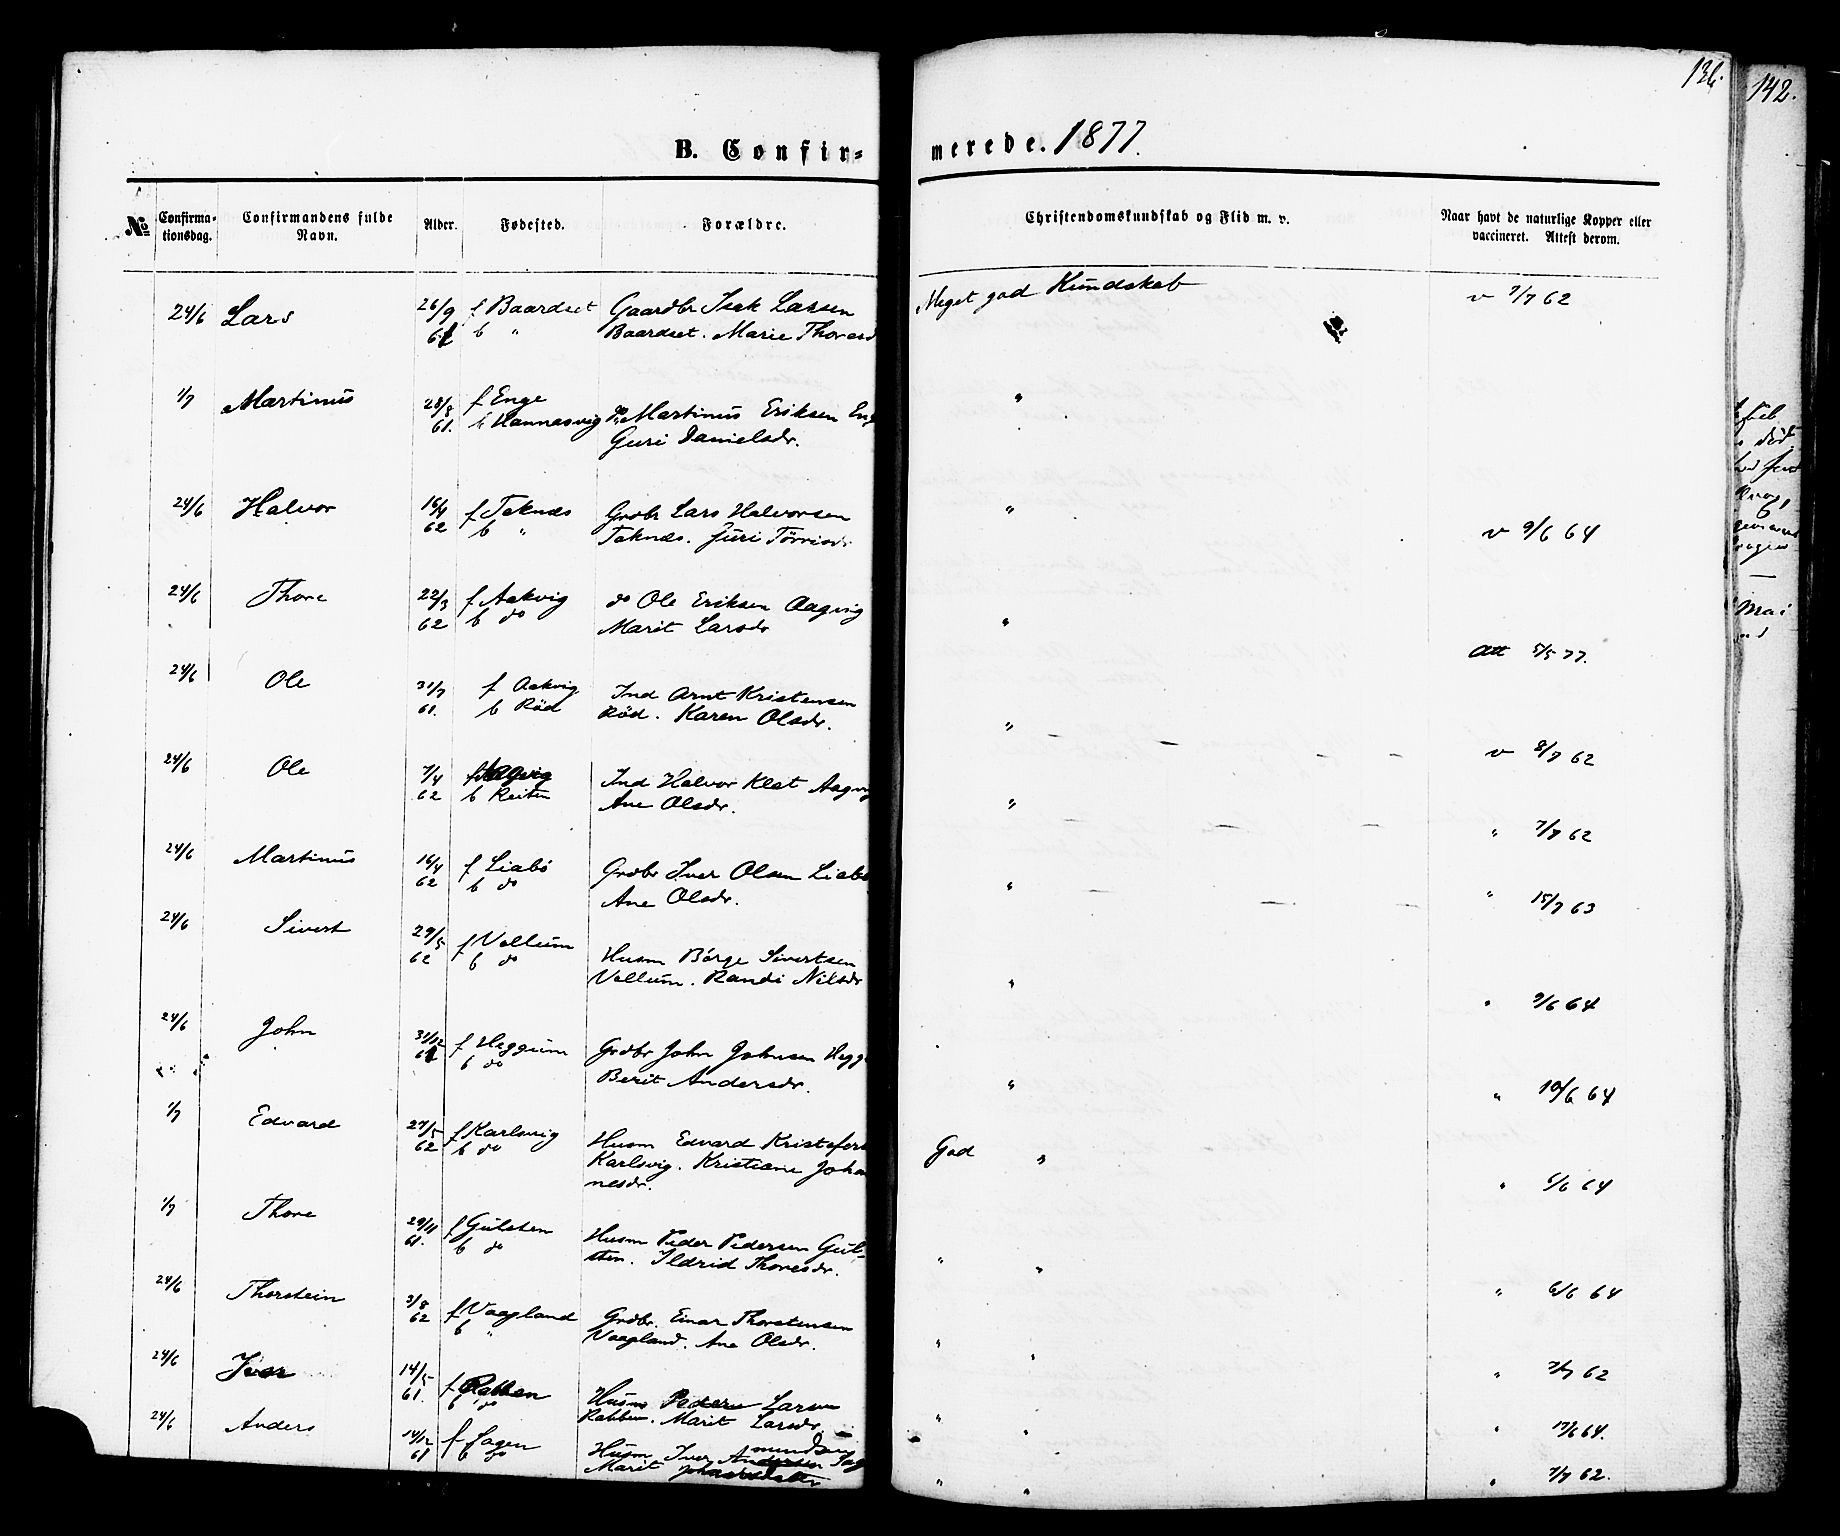 136.
142.
B. Confir-
merede. 1877.
No
Confirma-
tionsdag.
Confirmandens fulde
Navn.
Alder.
Fødested.
Forældre.
Christendomskundskab og Flid m. v.
Naar havt de naturlige Kopper eller
vaccineret. Attest derom.
24/6 Lars 26/9 f Baardset Gaardbr Isak Larsen Meget god Kundskab v 7/7 62
61 b " Baardset. Marie Thoresd
1/7 Martinus 28/8 f Enge do Martinus Eriksen En "
61. b Hannasvig Guri Danielsdr.
24/6 Halvor 16/4 f Taknes Grdbr Lars Halvorsen " v 9/6 64
62 b " Taknes. Guri Tørrisdr
24/6 Thore 22/3 f Aakvig do Ole Eriksen Aagvig " Att 5/5 77.
62 b do Marit Larsdr
24/6 Ole 31/7 f Aakvig Ind Arnt Kristensen " v 8/7 62
61. b Rød Rød. Karen Olsdr.
24/6 Ole 7/4 f Aagvig Ind Halvor Klet Aagvi " " 7/7 62
62 b Reiten Ane Olsdr.
24/6 Martinus 16/4 f Liabø Grdbr Iver Olsen Liabø " " 15/7 63
62 b do Ane Olsdr.
24/6 Sivert 29/5 f Vollum Husm Børge Sivertsen " " 9/6 64
62 b do Vollum. Randi Nilsdr
24/6 John 31/12 f Heggum Grdbr John Johnsen Hegg " " 10/6 64
61 b do Berit Andersdr.
1/7 Edvard 27/5 f Karlsvig Husm Edvard Kristofers God " " 6/6 64
62 b do Karlsvig. Kristiane Johan
nesdr.
1/7 Thore 29/11 f Gulsten Husm Peder Pedersen Gul- " " " 6/6 64
61. b do sten. Ildrid Thoresdr.
24/6 Thorstein 2/8 f Vaagland Grdbr. Einar Thorstensen " " " 7/7 62
62 b " Vaagland. Ane Olsdr.
24/6 Iver 14/5 f Rabben Husm Peder Larsen " " " 17/6 64.
61. b do Rabben. Marit Larsdr
24/6 Anders 14/12 f Sagen Husm Iver Amundsen Sag " " " 7/7 62.
61 b do Marit
Mai